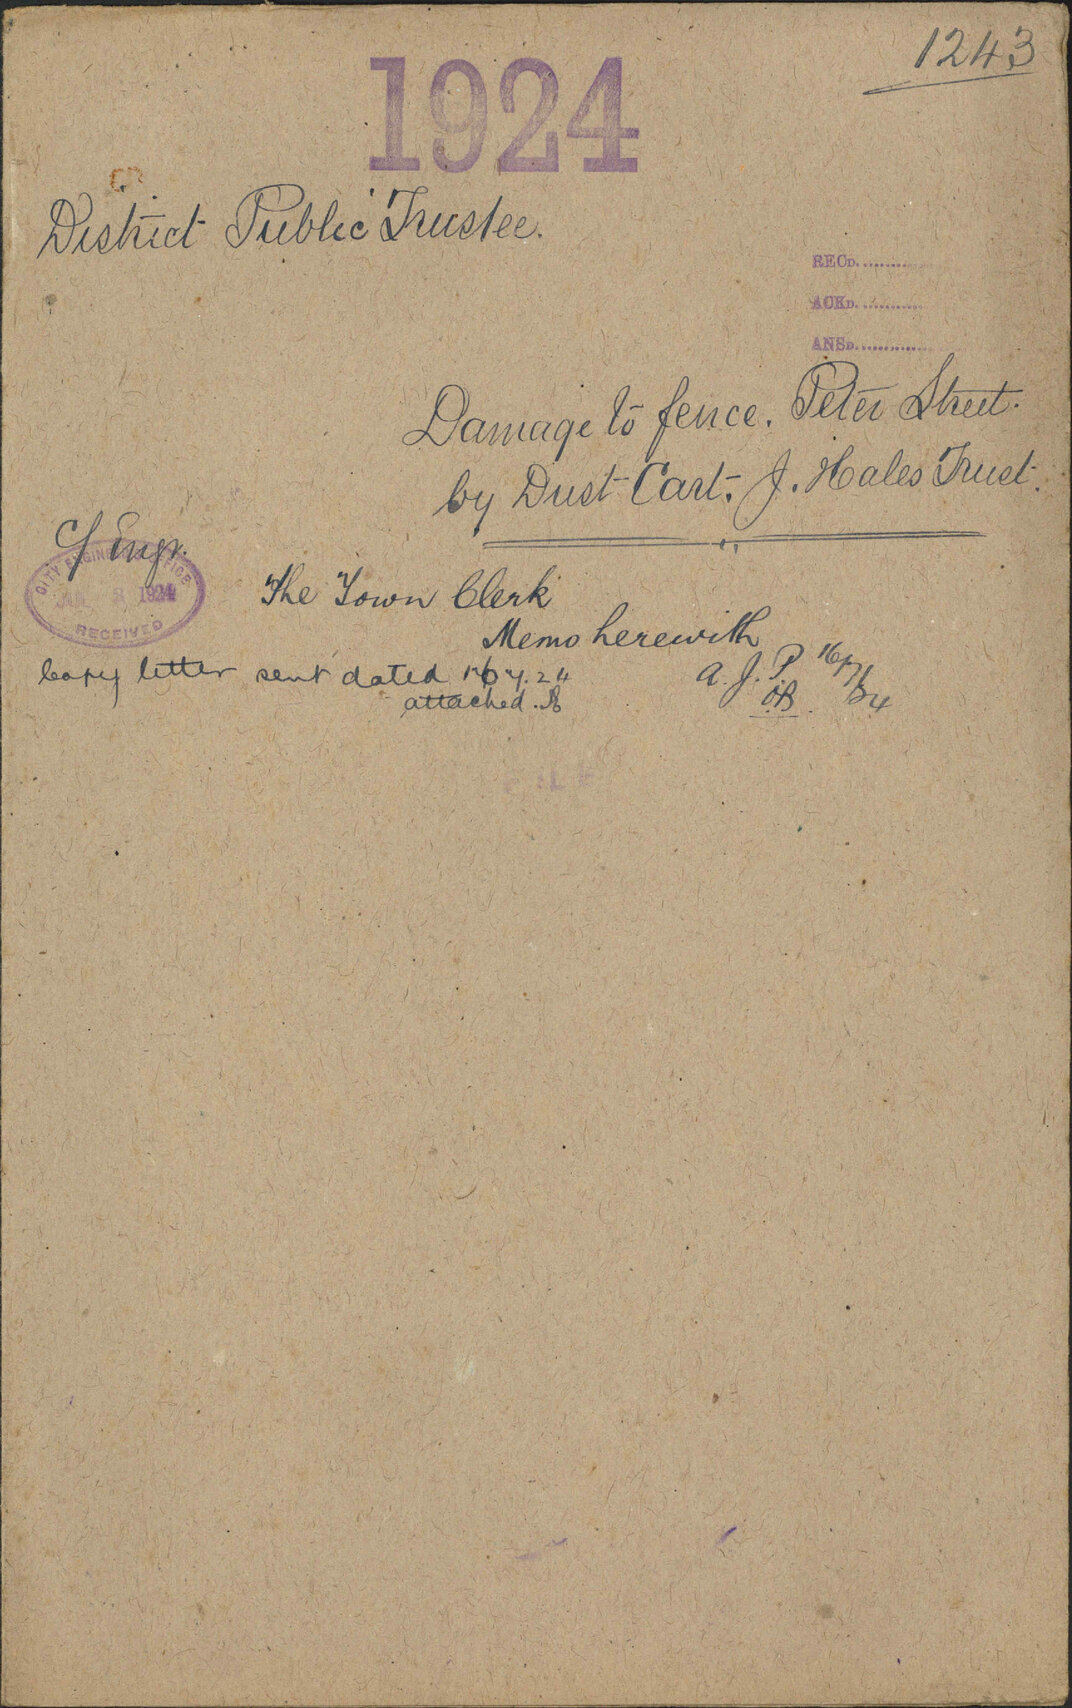 1243
1924
District Public Trustee.
RECD.
ACKD.
ANSD.
Damage to fence. Peter Street.
by Dust Cart. J. Hales Trust.
Cy Engr.
CITY ENGINEER'S OFFICE
1924
RECEIVED
The Town Clerk
Memo herewith
A. J. P. 16/7/24
Copy letter sent dated 16.7.24
attached.